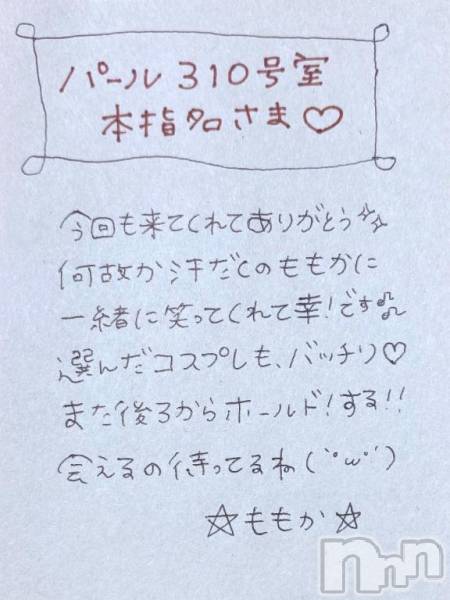 パール310号室
本指名さま♡
今回も来てくれてありがとう✨
何故か汗だくのももかに
一緒に笑ってくれて幸!です♫
選んだコスプレも、バッチリ♡
また後ろからホールド!する!!
会えるの待ってるね(`・ω・´)
☆ももか☆
nnn